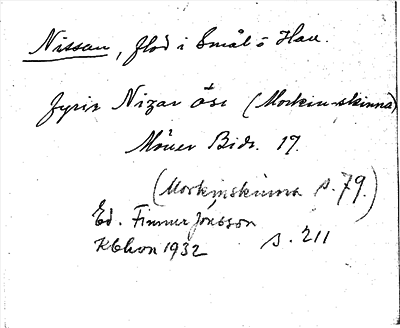 Nissan, flod i Smål o Hall.
fyrir Nizar ósi (Morkin-skinna)
Bidr. 17.
(Morkinskinna s. 79.)
Ed. Finnur Jónsson
Kbhvn 1932 s. 211